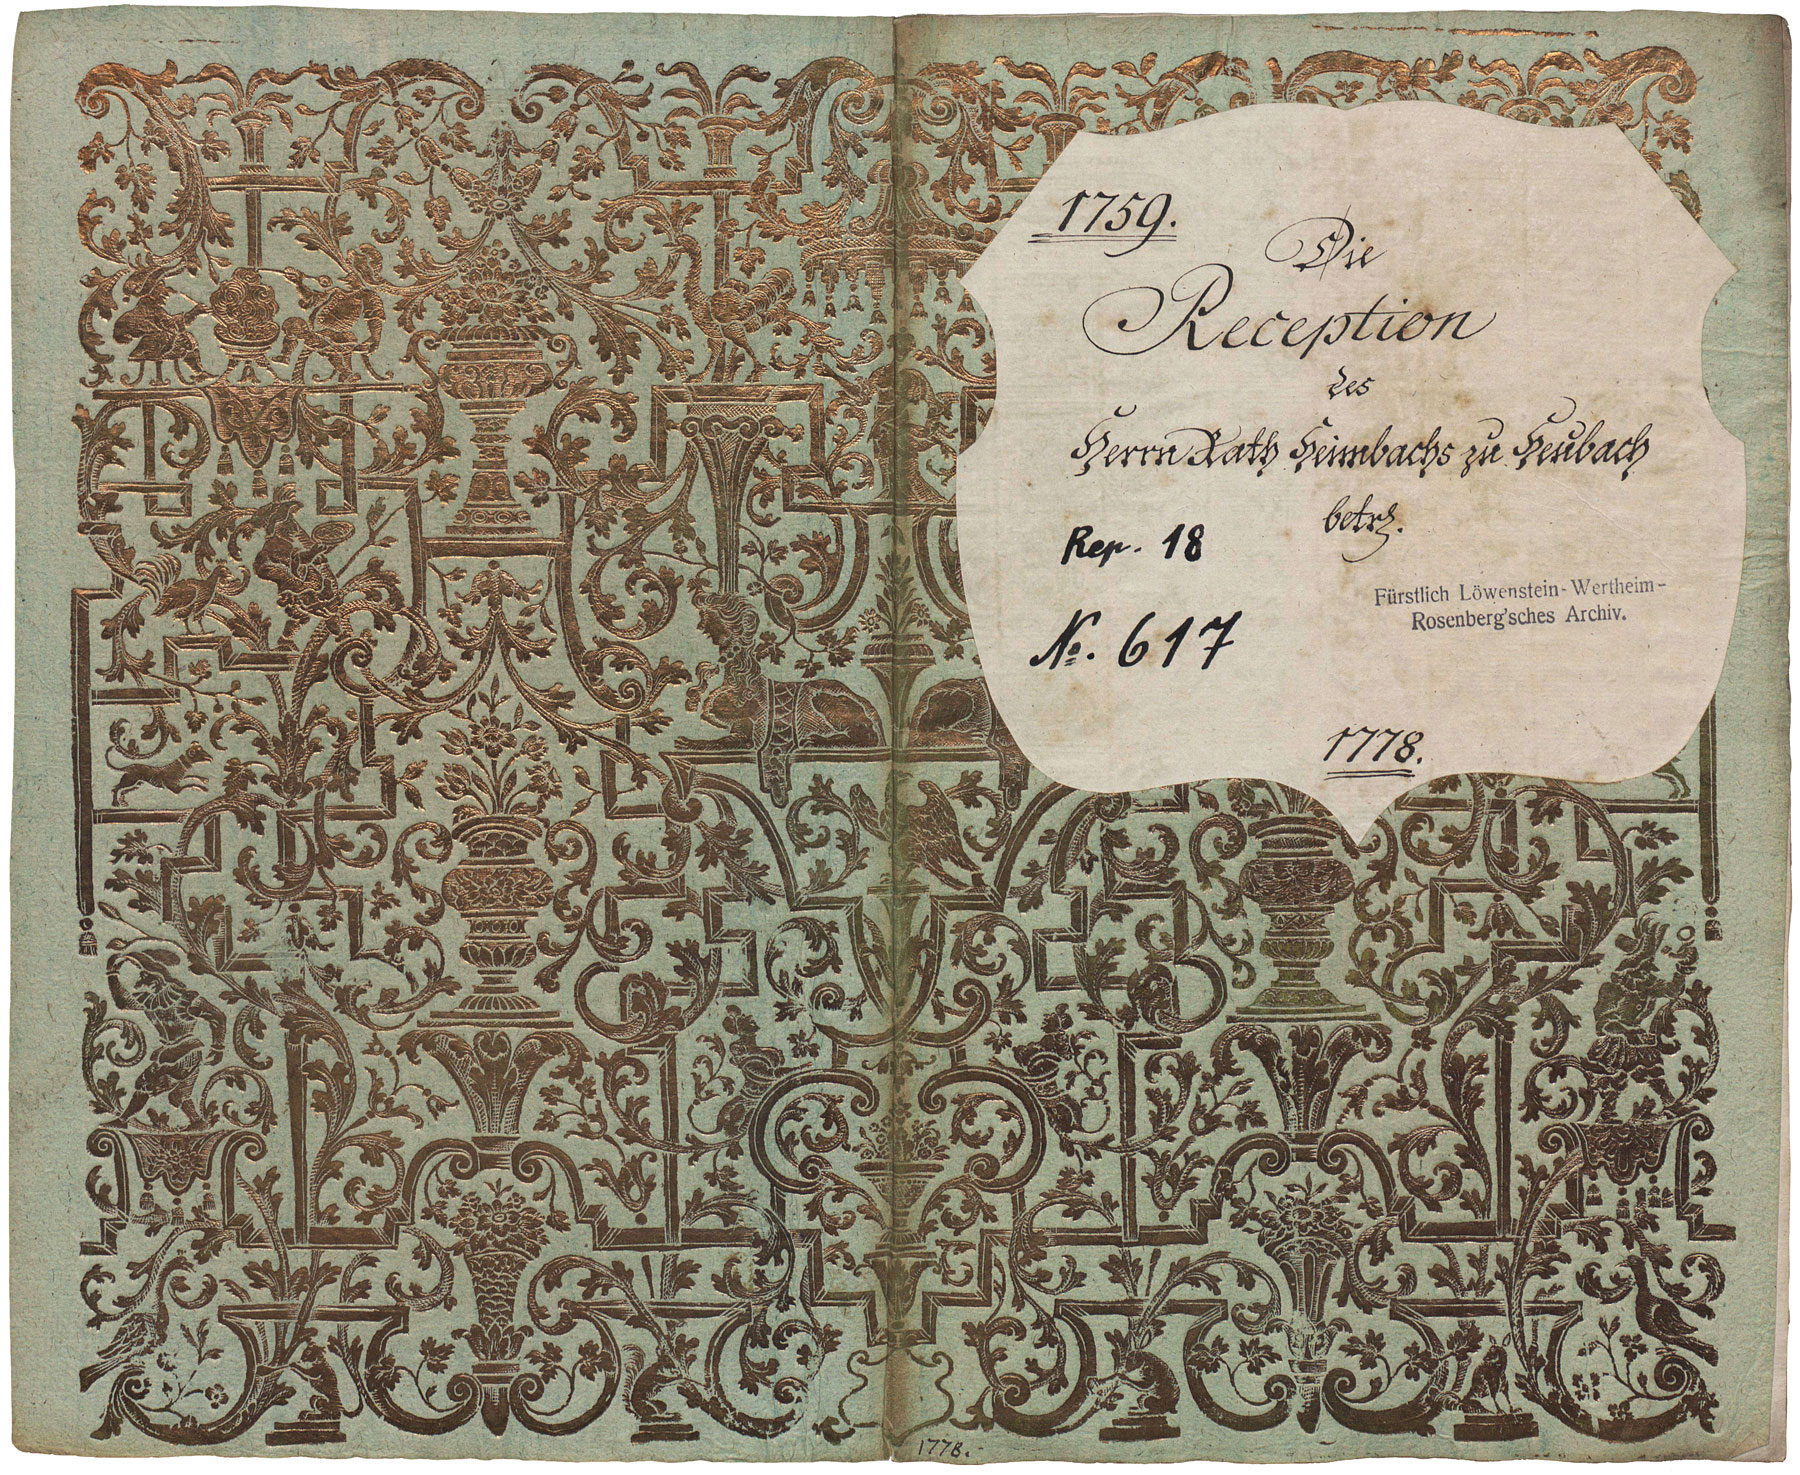 1759.
Die
Reception
des
Herrn Rath Heimbachs zu Heubach
betrf.
Rep. 18
Fürstlich Löwenstein-Wertheim-
Rosenberg'sches Archiv.
No. 617
1778.
1778.